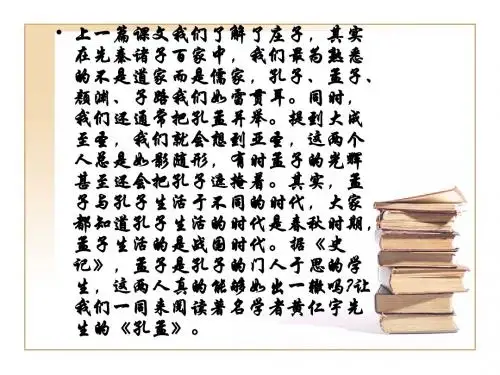 • 上一篇课文我们了解了庄子，其实
在先秦诸子百家中，我们最为熟悉
的不是道家而是儒家，孔子、孟子、
颜渊、子路我们如雷贯耳。同时，
我们还通常把孔孟并举。提到大成
至圣，我们就会想到亚圣，这两个
人总是如影随形，有时孟子的光辉
甚至还会把孔子遮掩着。其实，孟
子与孔子生活于不同的时代，大家
都知道孔子生活的时代是春秋时期，
孟子生活的是战国时代。据《史
记》，孟子是孔子的门人于思的学
生，这两人真的能够如出一辙吗?让
我们一同来阅读著名学者黄仁宇先
生的《孔孟》。